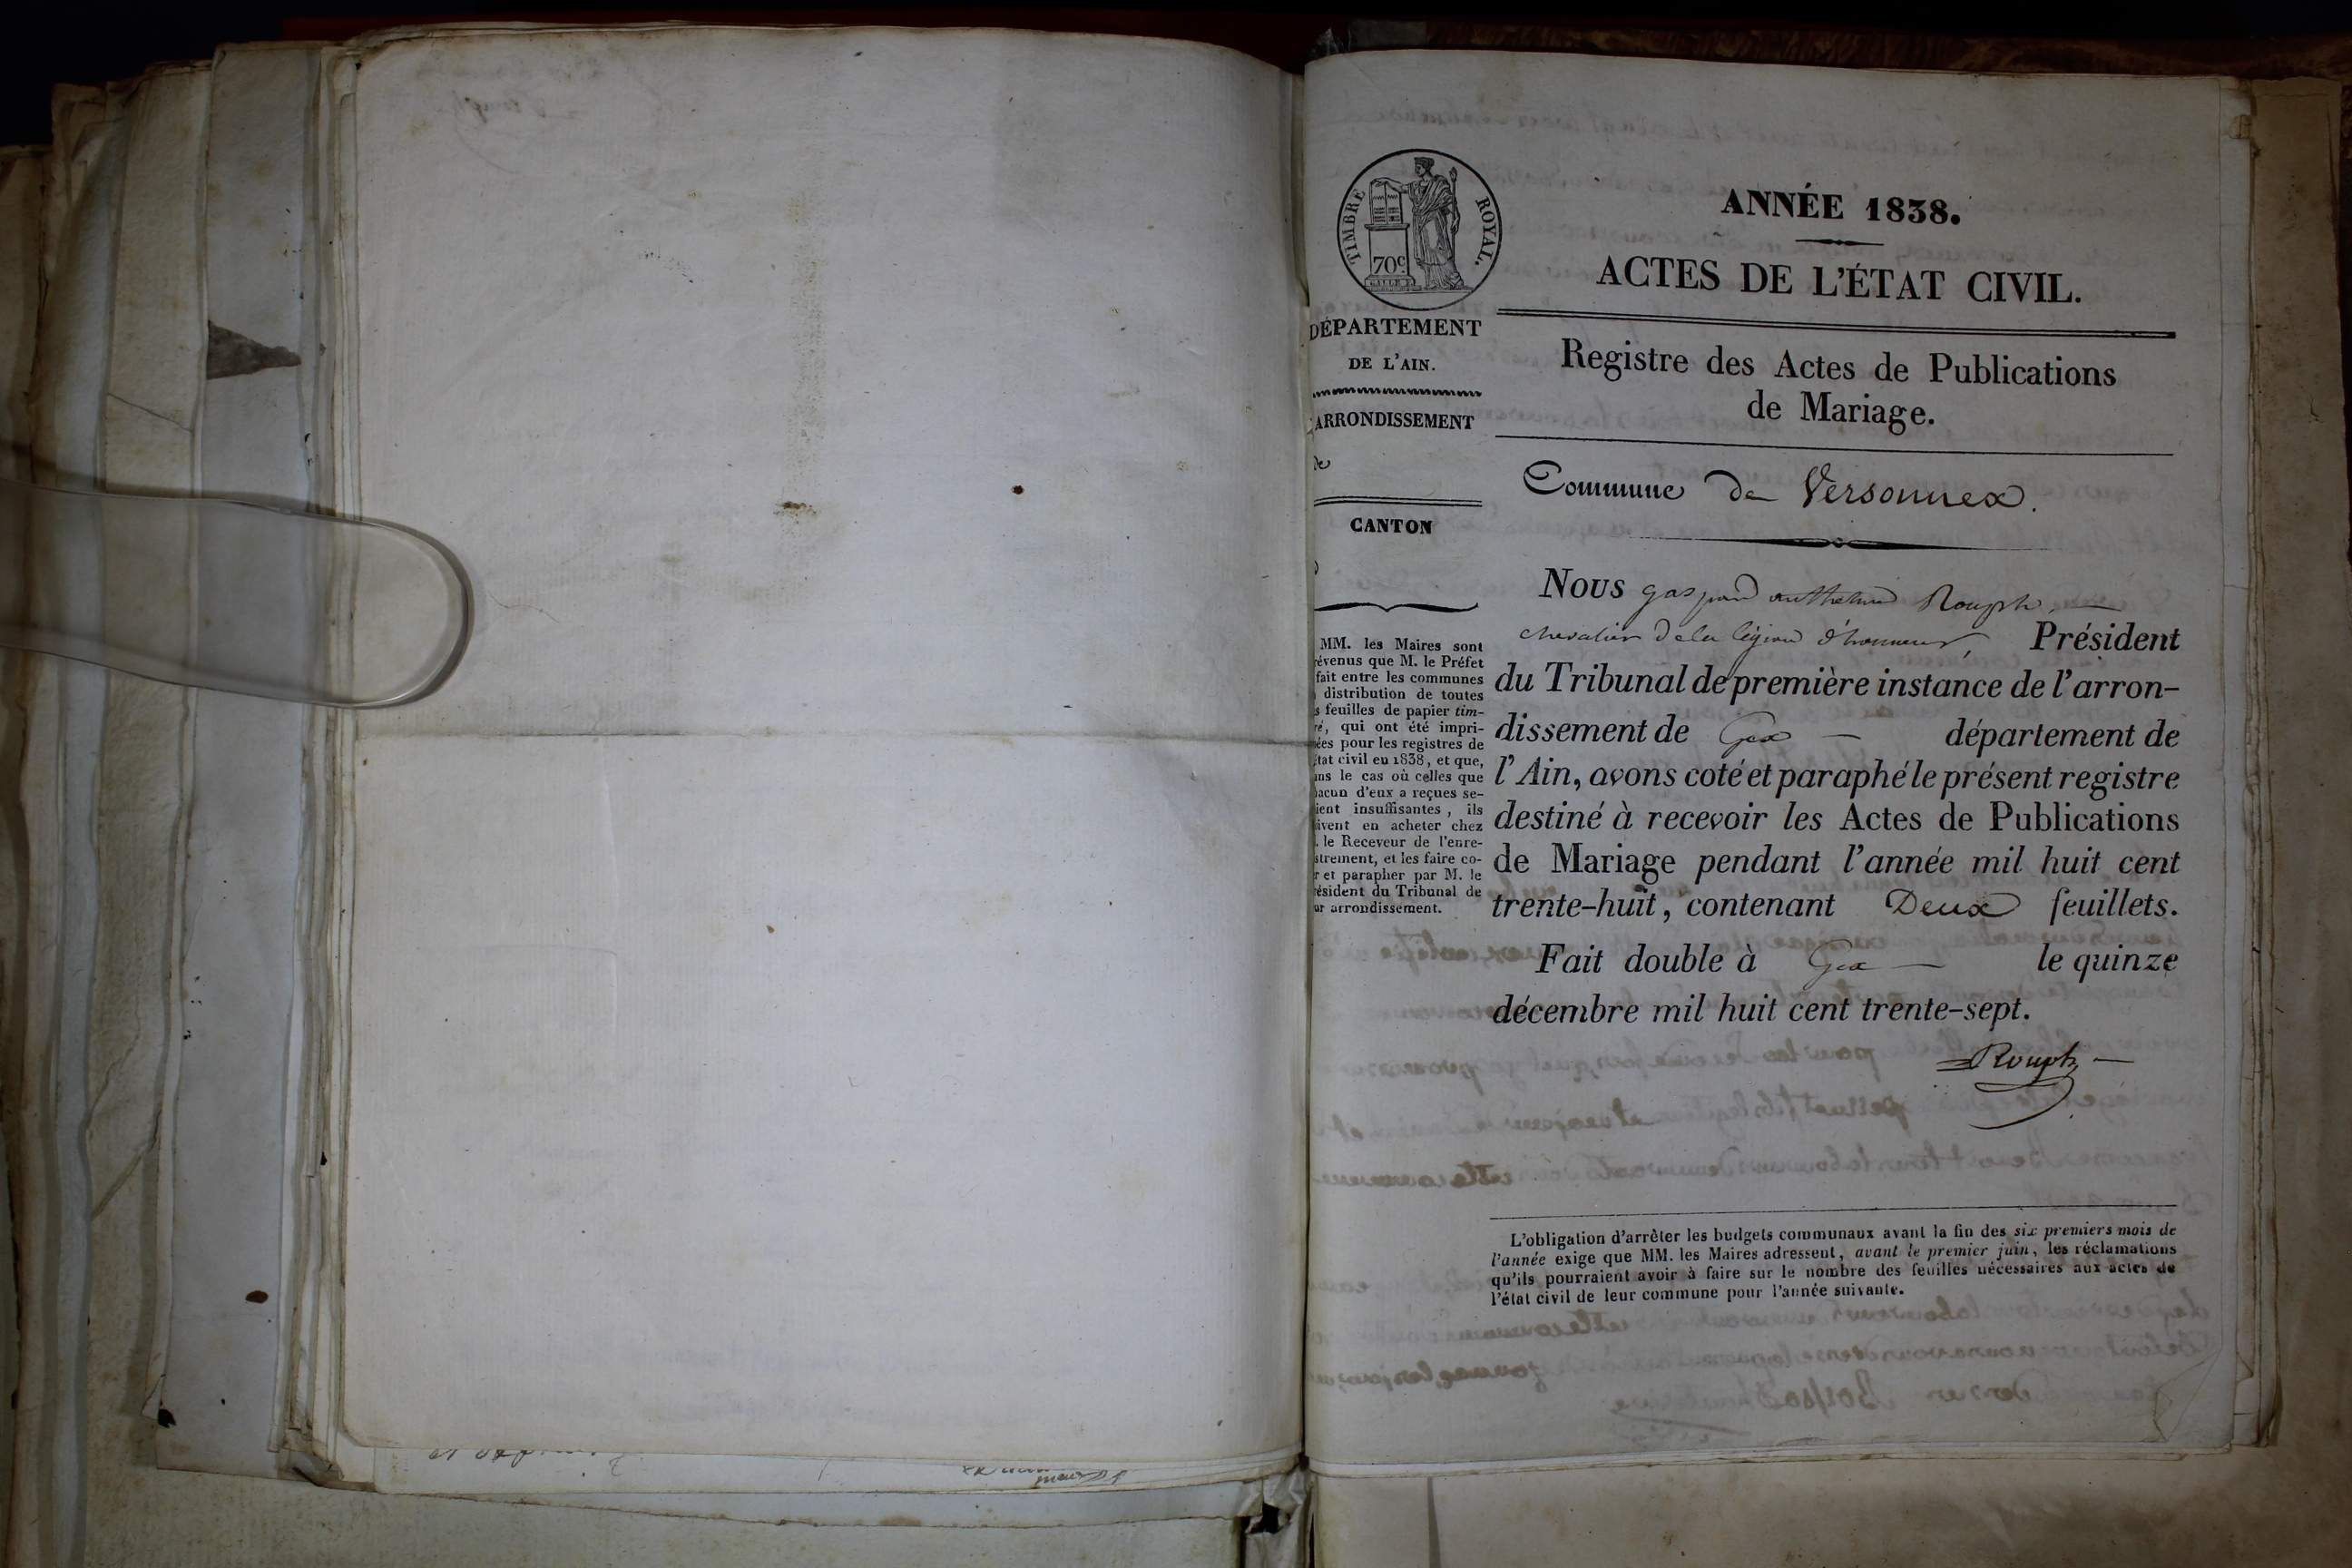 TIMBRE ROYAL.
70c
ANNÉE 1838.
ACTES DE L'ÉTAT CIVIL.
DÉPARTEMENT
DE L'AIN.
ARRONDISSEMENT
de
CANTON
MM. les Maires sont
révenus que M. le Préfet
fait entre les communes
distribution de toutes
s feuilles de papier tim-
ré, qui ont été impri-
ées pour les registres de
état civil en 1838, et que,
ns le cas où celles que
hacun d'eux a reçues se-
ient insuffisantes, ils
ivent en acheter chez
. le Receveur de l'enre-
strement, et les faire co-
r et parapher par M. le
résident du Tribunal de
ur arrondissement.
Registre des Actes de Publications
de Mariage.
Commune de Versonnex.
Nous gaspard anthelme Rouph,
chevalier de la légion d'honneur, Président
du Tribunal de première instance de l'arron-
dissement de Gex — département de
l'Ain, avons coté et paraphé le présent registre
destiné à recevoir les Actes de Publications
de Mariage pendant l'année mil huit cent
trente-huit, contenant Deux feuillets.
Fait double à Gex — le quinze
décembre mil huit cent trente-sept.
Rouph
L'obligation d'arrêter les budgets communaux avant la fin des six premiers mois de
l'année exige que MM. les Maires adressent, avant le premier juin, les réclamations
qu'ils pourraient avoir à faire sur le nombre des feuilles nécessaires aux actes de
l'état civil de leur commune pour l'année suivante.